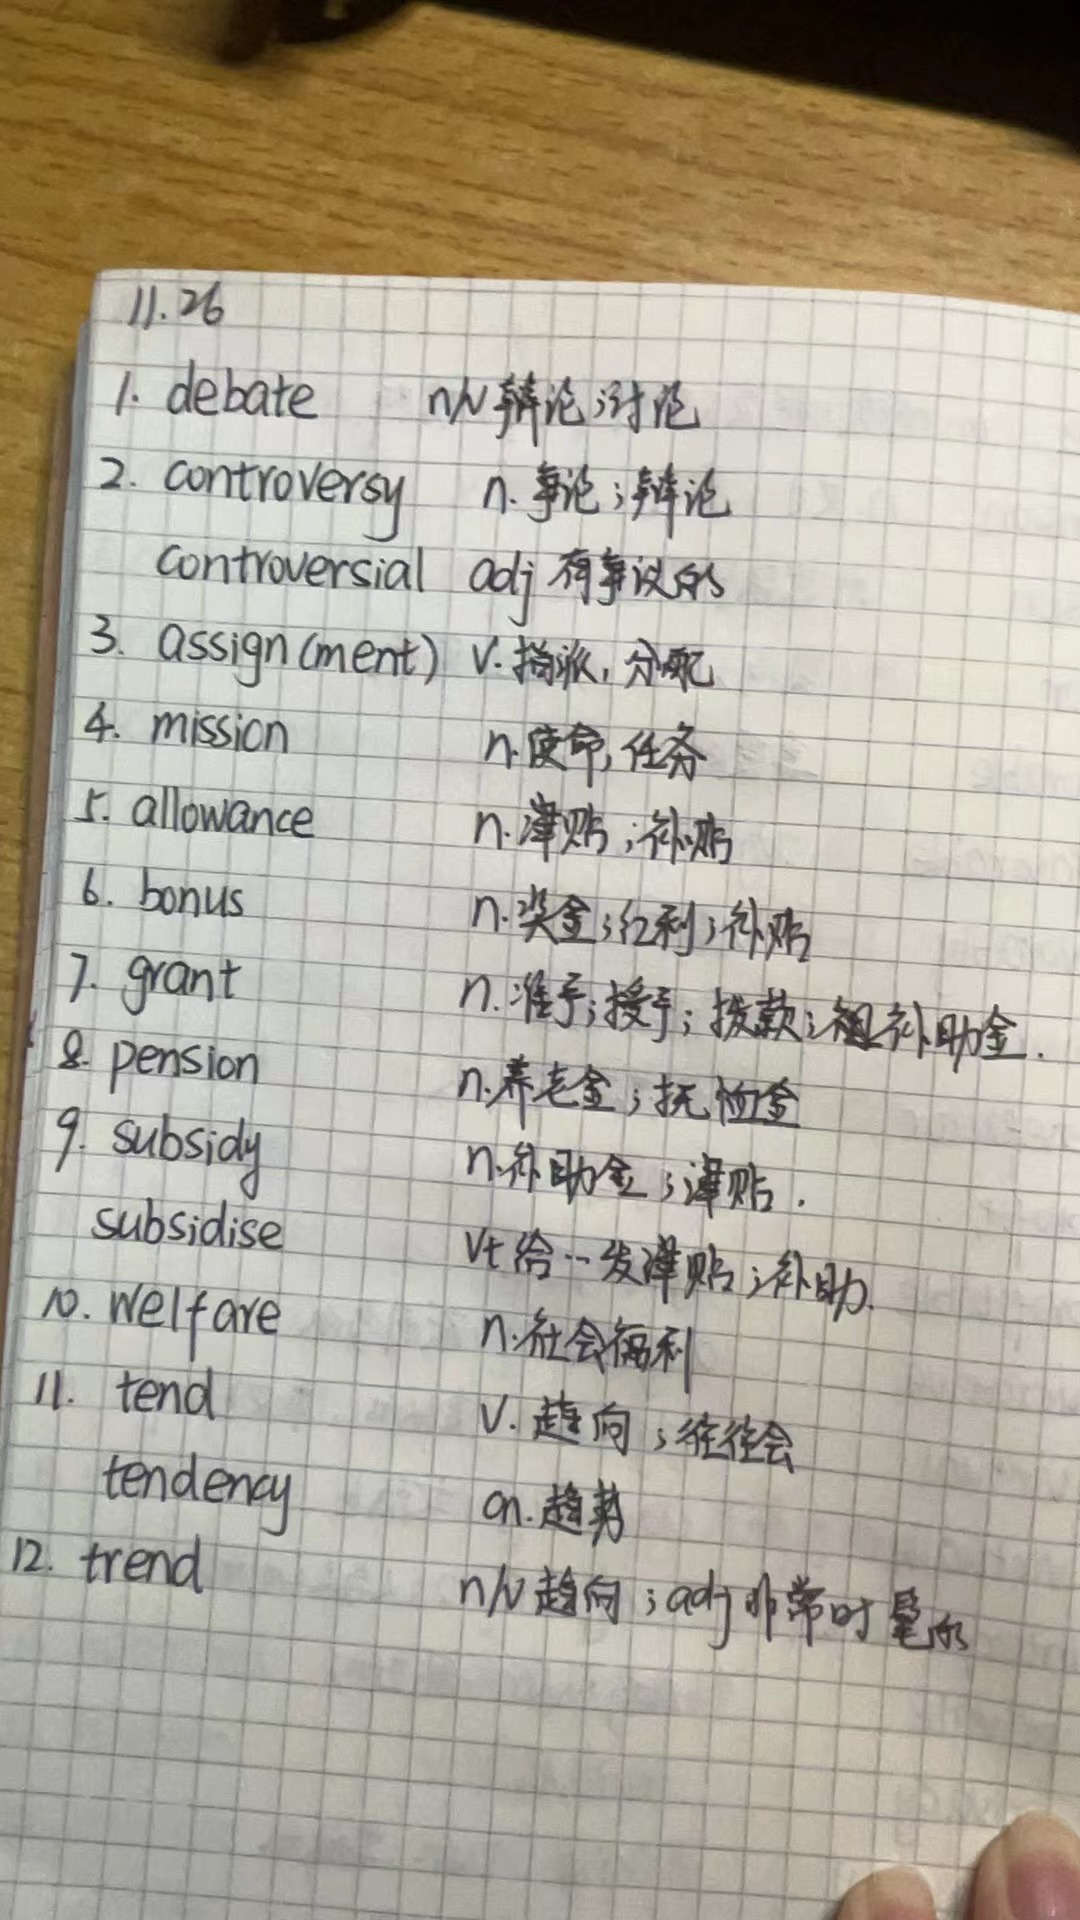 11.26
1. debate n/v 辩论;讨论
2. controversy n. 争论;辩论
controversial adj 有争议的
3. assign(ment) v. 指派,分配
4. mission n. 使命,任务
5. allowance n. 津贴;补贴
6. bonus n. 奖金;红利;补贴
7. grant n. 准予;授予;拨款;补助金.
8. pension n. 养老金;抚恤金
9. subsidy n. 补助金;津贴.
subsidise vt 给…发津贴;补助.
10. welfare n. 社会福利
11. tend v. 趋向;往往会
tendency cn. 趋势
12. trend n/v 趋向;adj 非常时髦的